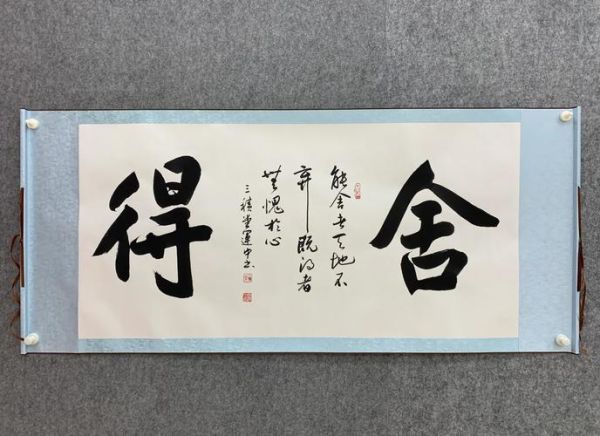 舍
能舍者天地不
弃既得者
無愧於心
三堂運中书
得